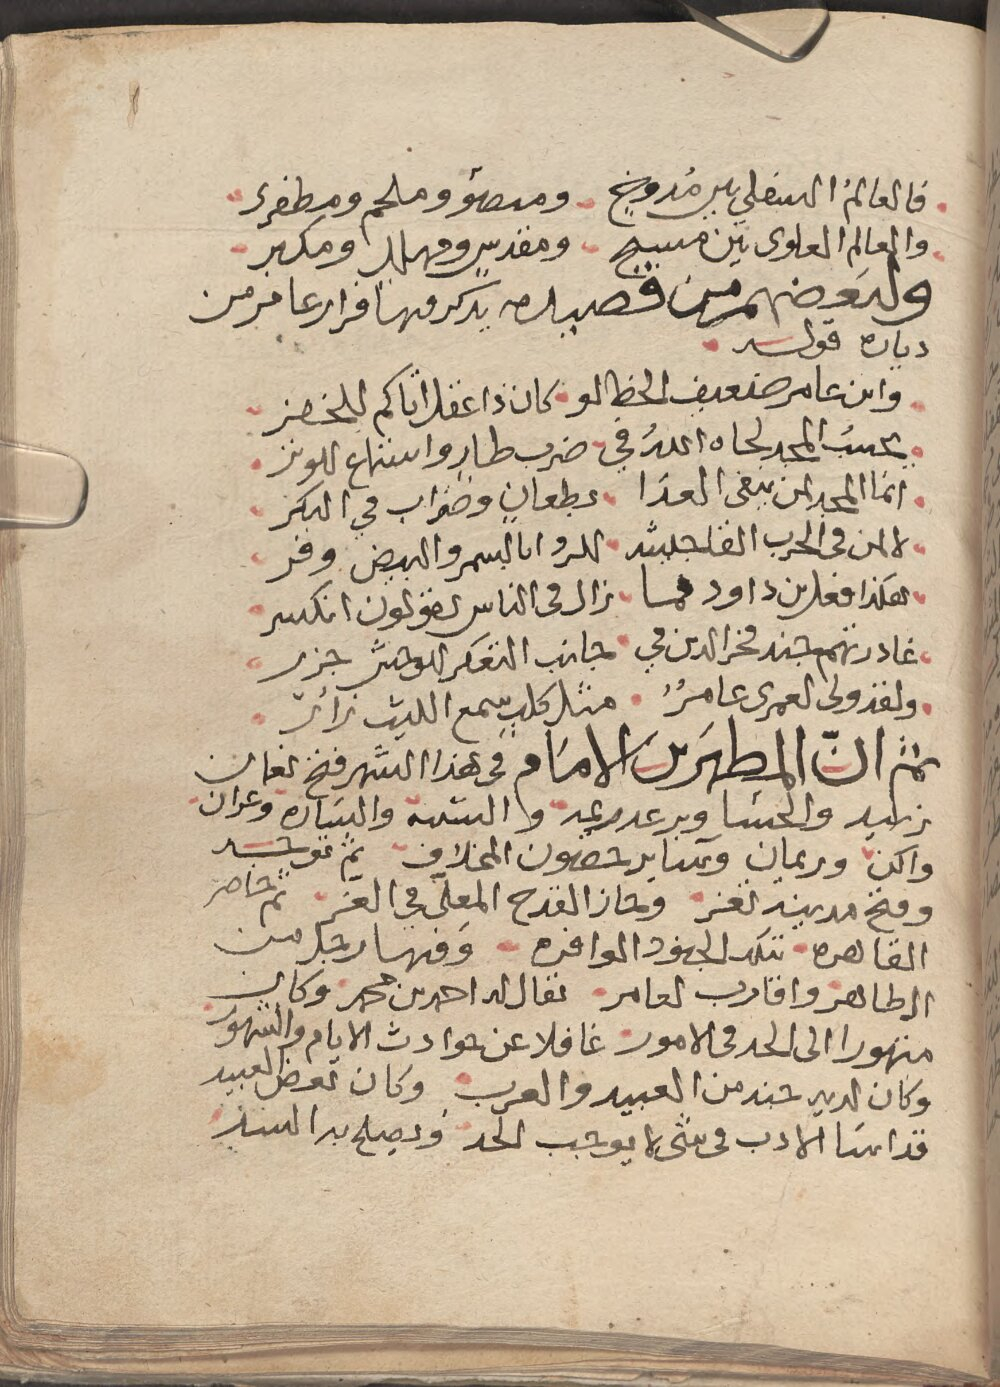 فالعالمُ السفلي بين مُدوخ ومنصو وملحم ومطفر
والعالم العلوى بين مسبح ومقدس ومهلل ومكبر
ولبعضهم من قصيده يذكر فيها فرار عامر من
دياره قوله
وابن عامر ضعيف الخط لو كان ذا عقل اتاكم للخضر
يحسبُ المجد لحاه اللهُ في ضرب طار واستماع للوتر
انما المجد لمن يبغى العدا بطعان وضراب في البكر
لا لمن في الحرب القا جليثه للردا بالسمر والبيض وفر
هكذا فعل بن داود فما زال في الناس لقولون انكسر
غادرتهم جند فخر الدين في جانب التعكر للوحش جزر
ولقد ولى لعمرى عامرُ مثل كلب سمع الليث زأر
ثم انّ المطهر بن الامام في هذا الشهر فتح نعمان
زبيد والحشا وبرعد والسنه والساره وعران
واكن وريمان وساير حصون المخلاف ثم توجه
وفتح مدينة تعز وحاز القدح المعلّى في العز ثم حاصر
القاهره بتلك الجنود الوافره وفيها رجل من
الطاهر واقارب لعامر يقال له احمد بن محمد وكان
منهورا الى الحد في الامور غافلا عن حوادث الايام والشهور
وكان لديه جند من العبيد والعرب وكان بعض العبيد
قد اسا الادب في شى لا يوجب الحد ويصلح به السيد